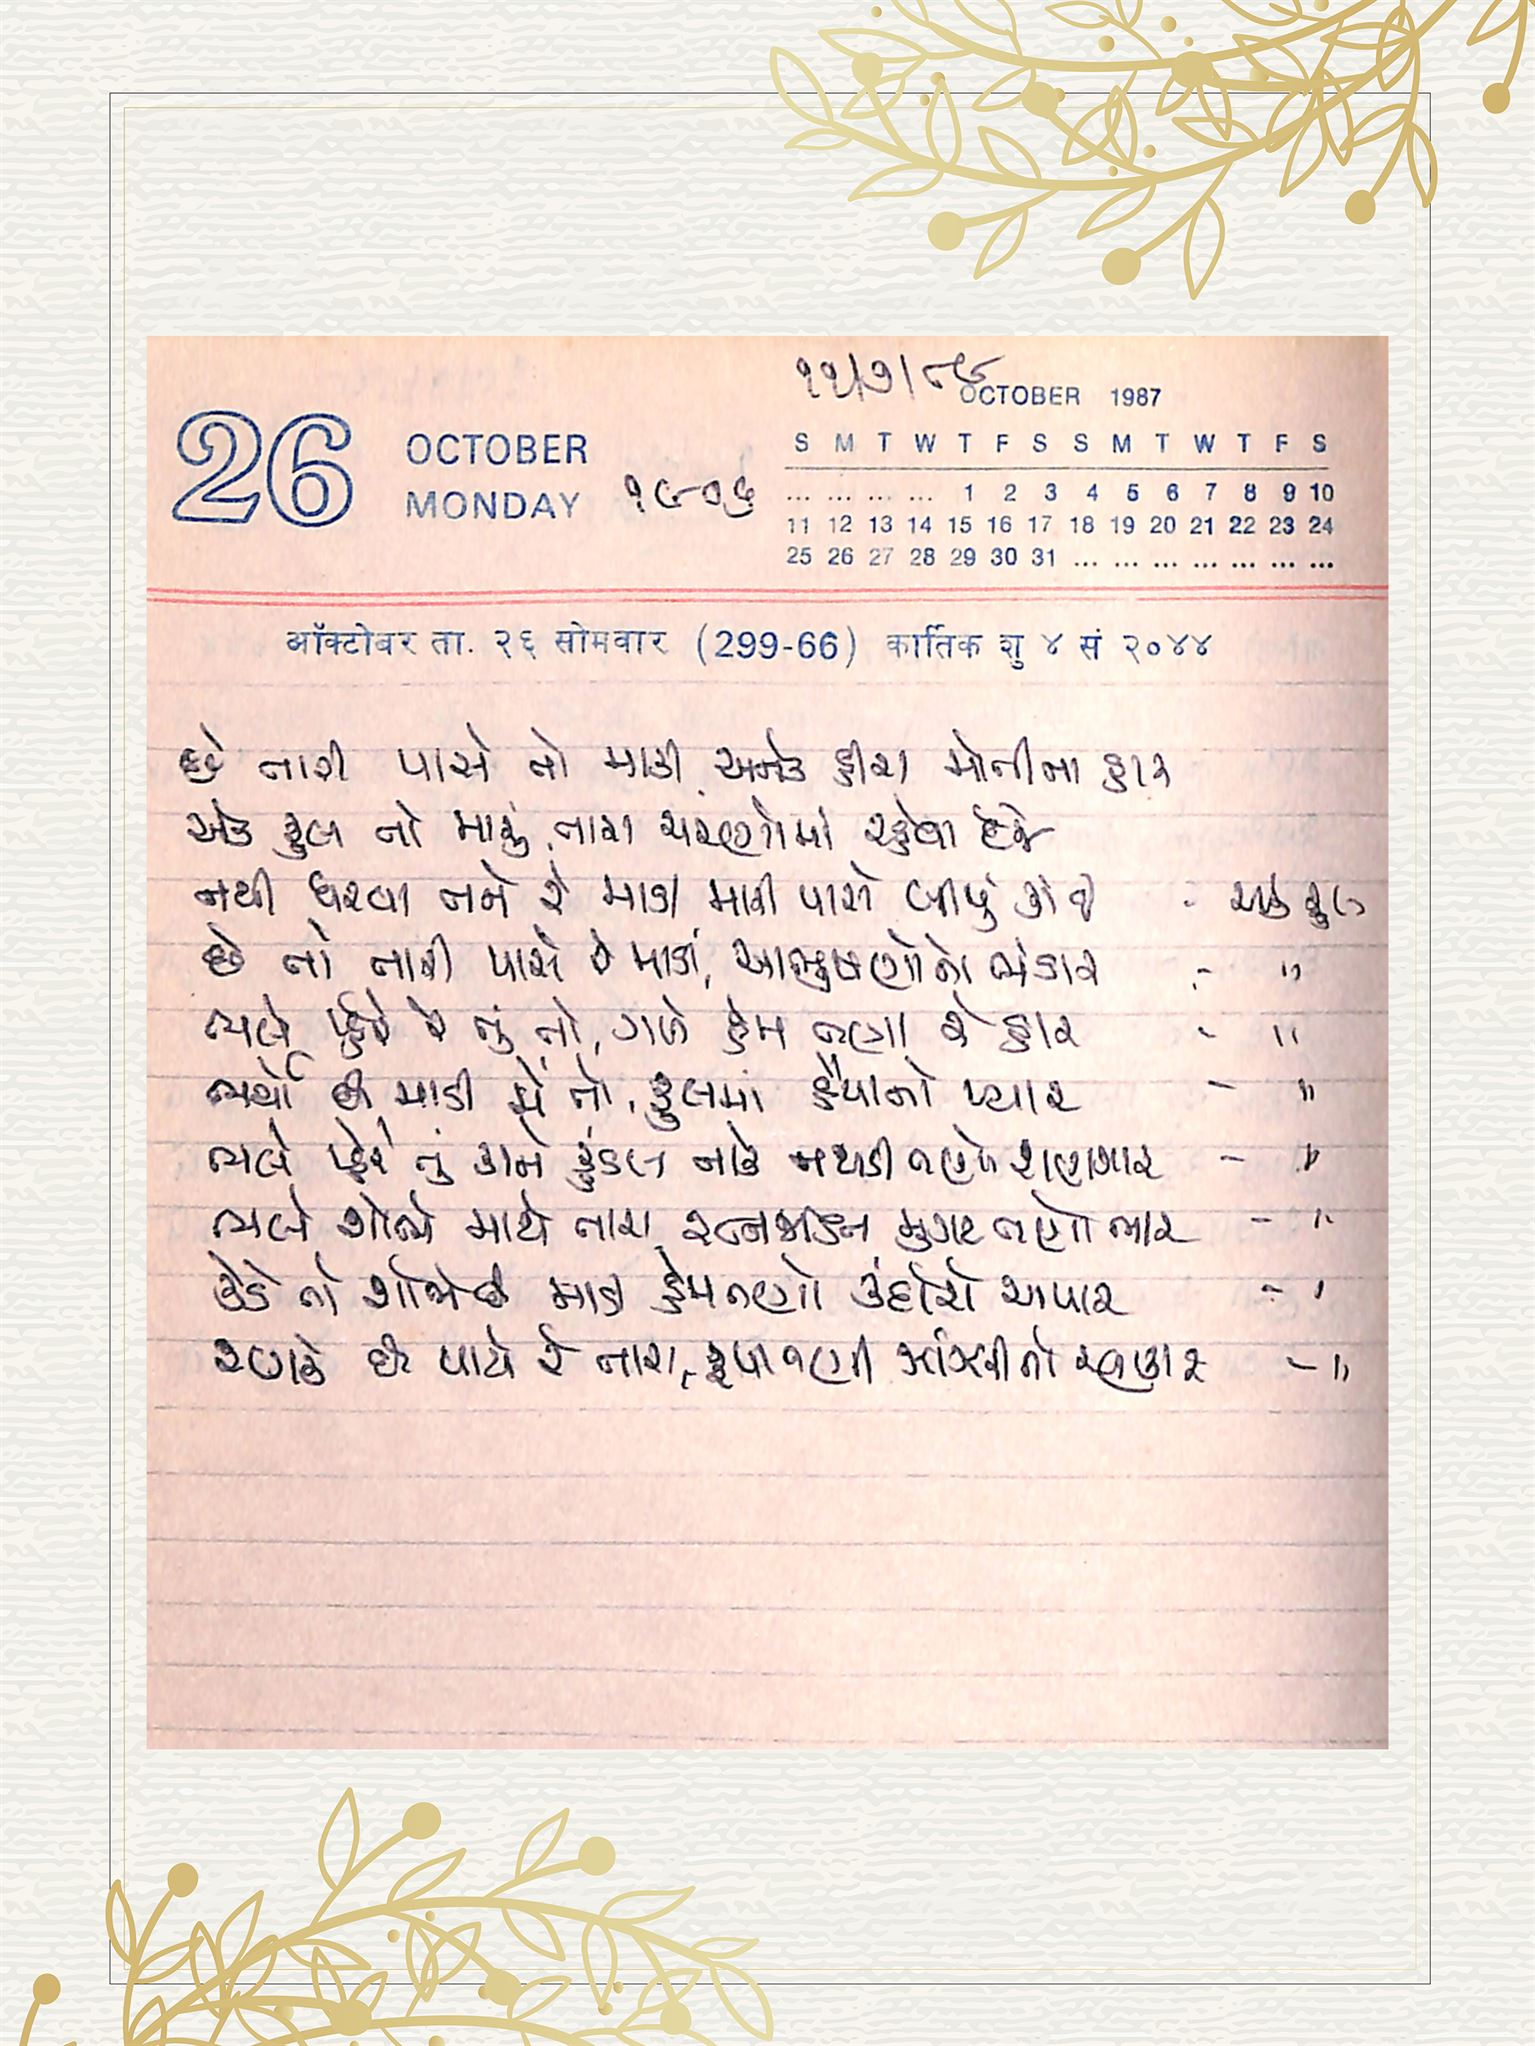 ૧૧/૭/૮૯
OCTOBER 1987
26 OCTOBER
MONDAY ૧૯૦૬
S M T W T F S S M T W T F S
... ... ... ... 1 2 3 4 5 6 7 8 9 10
11 12 13 14 15 16 17 18 19 20 21 22 23 24
25 26 27 28 29 30 31 ... ... ... ... ... ... ...
ऑक्टोबर ता. २६ सोमवार (299-66) कार्तिक शु ४ सं २०४४
છે તારી પાસે તો માડી અનેક હીરા મોતીના હાર
એક ફુલ તો મારું, તારા ચરણોમાં રહેવા દેજે
નથી ધરવા તને રે માડી મારી પાસે બીજું કાંઈ - એક ફુલ
છે તો તારી પાસે રે માડી, આભુષણોનો ભંડાર - "
ભલે પ્હેરે રે તું તો, ગળે હેમ તણા રે હાર - "
ભર્યો છે માડી મેં તો, ફુલમાં હૈયાનો પ્યાર - "
ભલે પ્હેરે તું કાને કુંડલ નાકે નથડી તણો શણગાર - "
ભલે શોભે માથે તારા, રત્નજડિત મુગટ તણો ભાર - "
કેડે તો શોભે છે માડી હેમતણો કંદોરો અપાર - "
રણકે છે પાયે રે તારા, રૂપા તણી ઝાંઝરીનો રણકાર - "